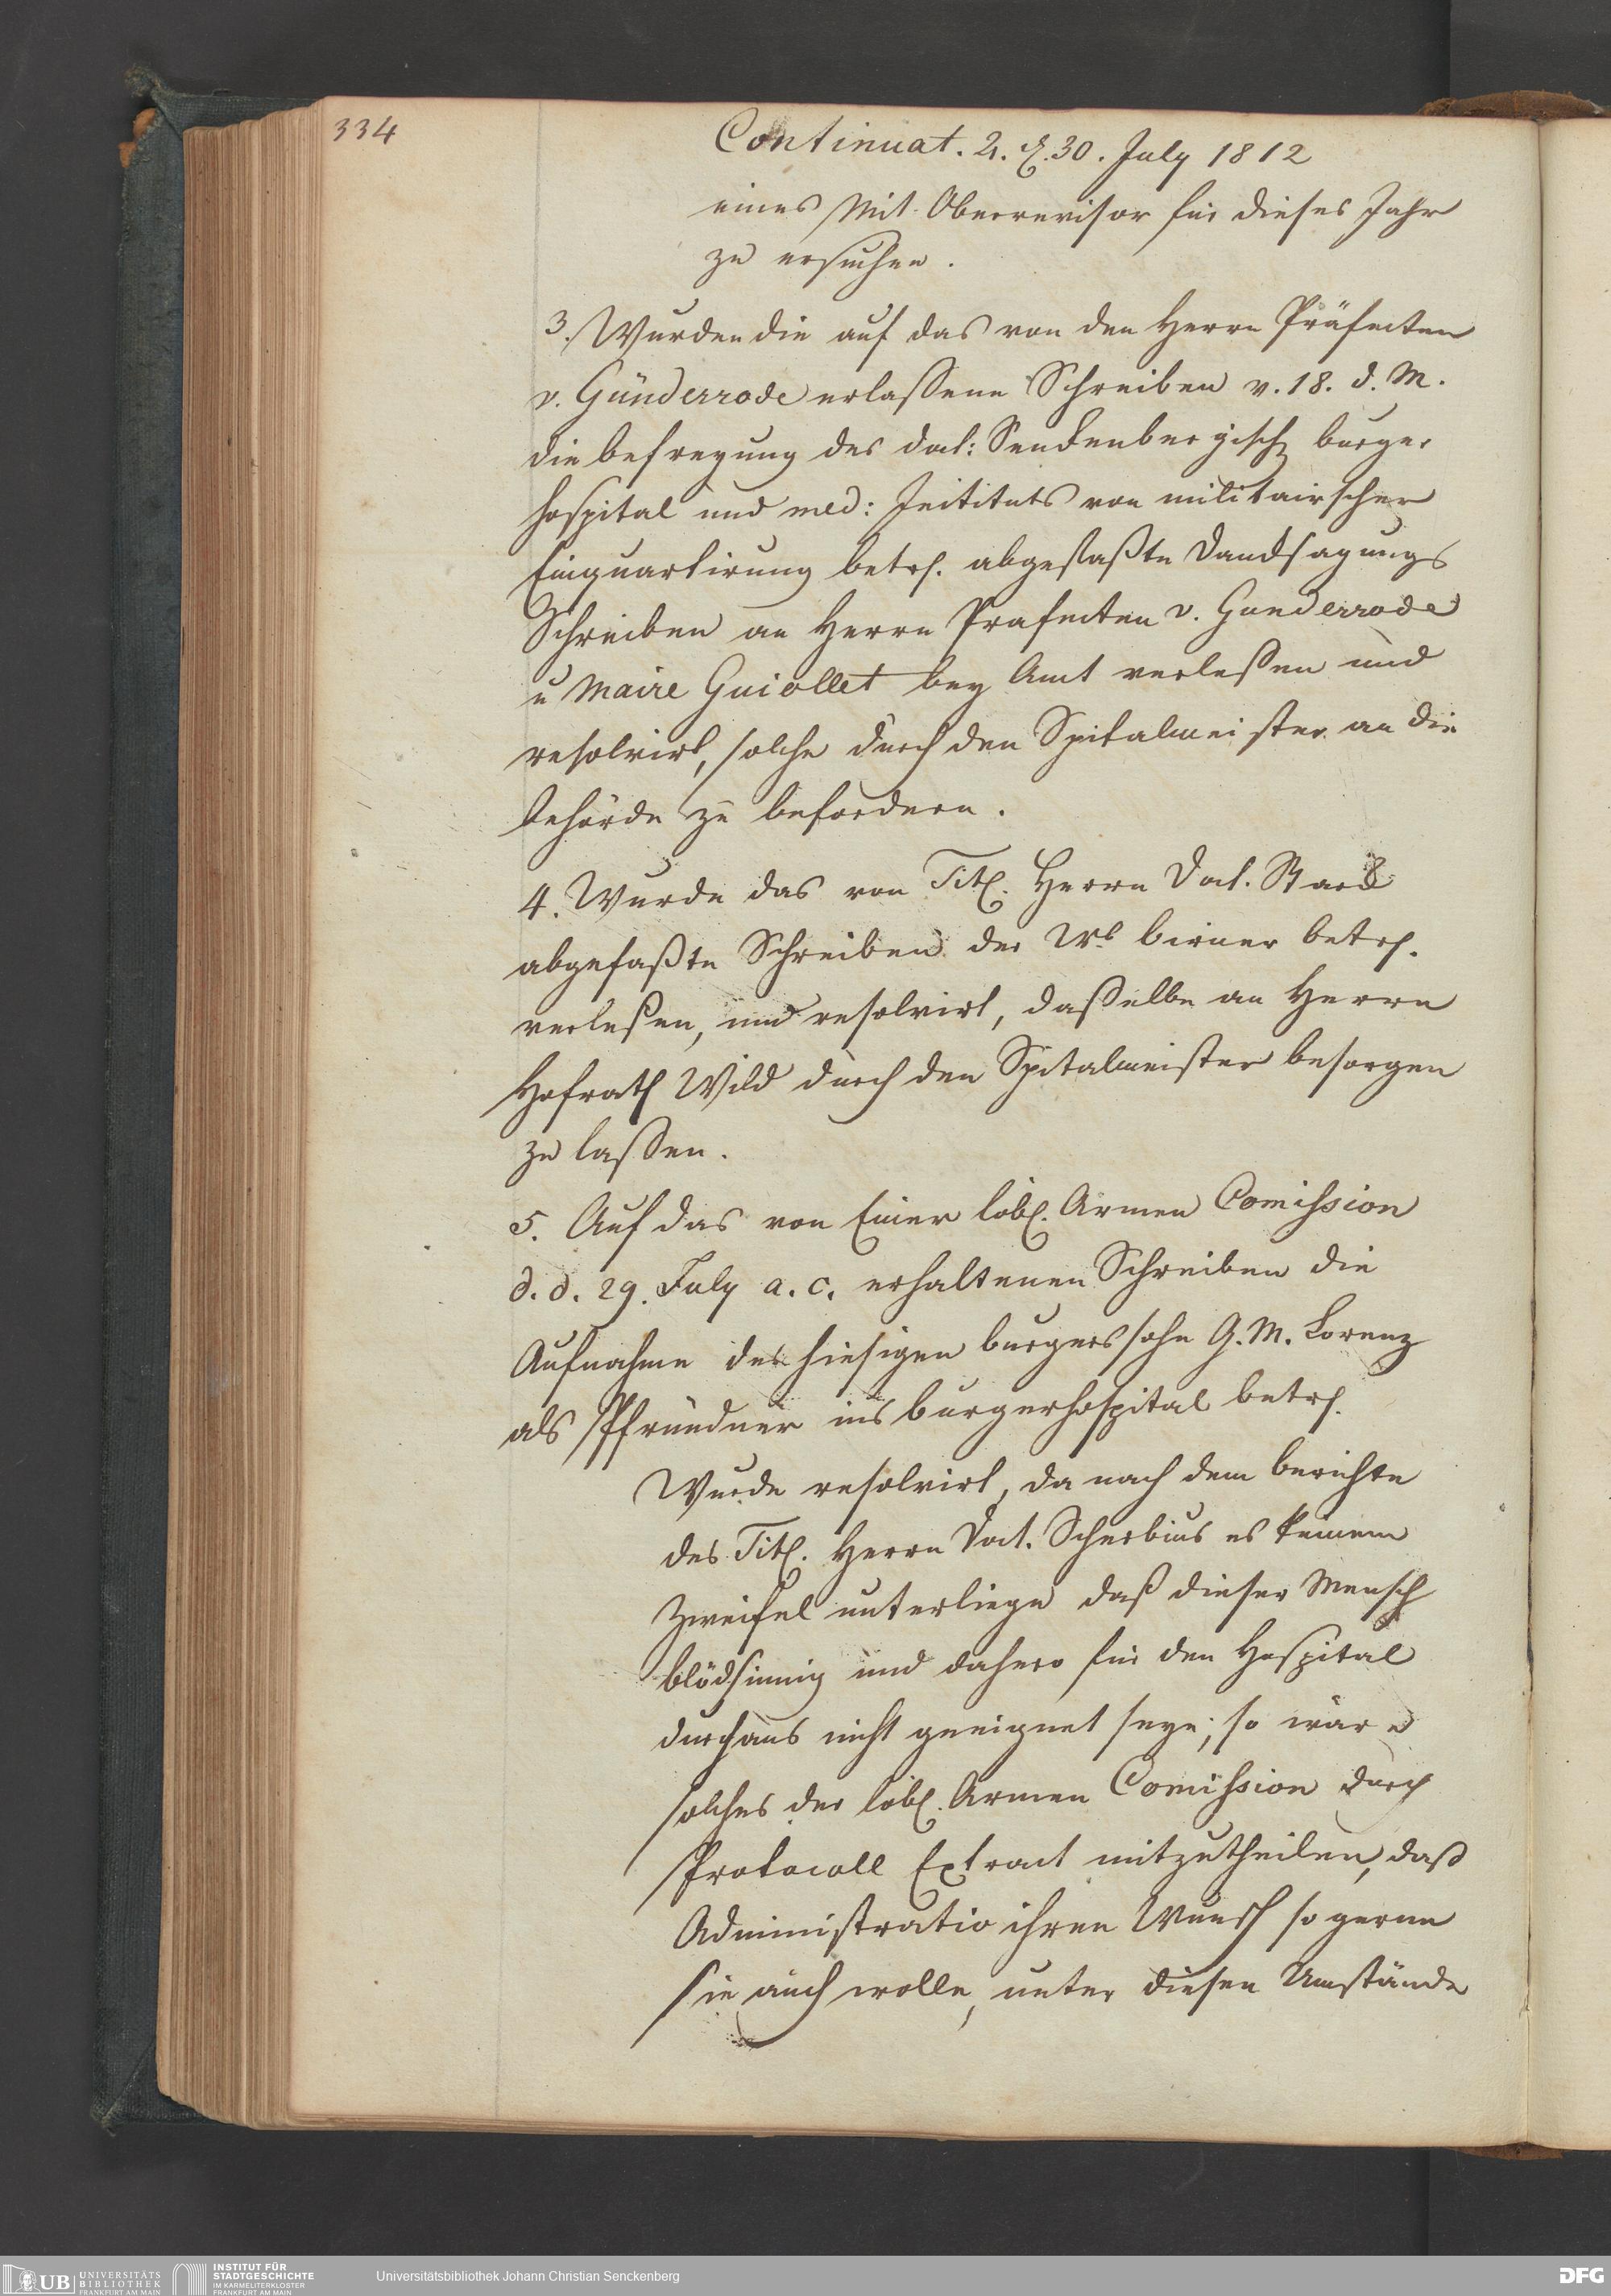 334
Continuat. 2. d. 30. July 1812
eines Mit-Oberrevisor für dieses Jahr
zu ersuchen.
3. Wurden die auf das von den Herrn Präfecten
v. Günderrode erlassene Schreiben v. 18. d. M.
die befreyung des doct: Senckenbergisch burger
hospital und med: Institituts von militairscher
Einquartirung betrf. abgefaßte Dancksagungs
Schreiben an Herrn Prafecten v. Gunderrode
u Maire Guiollet bey Amt verlesen und
resolvirt, solche durch den Spitalmeister an die
behörde zu befordern.
4. Wurde das von Titl. Herrn Doct. Starck
abgefaßte Schreiben der Wb birner betrf.
verlesen, und resolvirt, dasselbe an Herrn
Hofrath Wild durch den Spitalmeister besorgen
zu lassen.
5. Auf das von Einer löbl. Armen Comission
d. d. 29. July a. c. erhaltenen Schreiben die
Aufnahme des hiesigen burgerssohn G. M. Lorenz
als Pfründner ins burgerhospital betrf.
Wurde resolvirt, da nach dem berichte
des Titl. Herrn Doct. Scherbius es keinem
Zweifel unterliege daß dieser Mensch
blödsinnig und dahero für den Hospital
durchaus nicht geeignet seye; so wäre
solches der löbl. Armen Comission durch
Protocoll Extract mitzutheilen, daß
Administratio ihren Wunsch so gerne
sie auch wolle, unter diesen Umstände
UB UNIVERSITÄTS
BIBLIOTHEK
FRANKFURT AM MAIN
INSTITUT FÜR
STADTGESCHICHTE
IM KARMELITERKLOSTER
FRANKFURT AM MAIN
Universitätsbibliothek Johann Christian Senckenberg
DFG